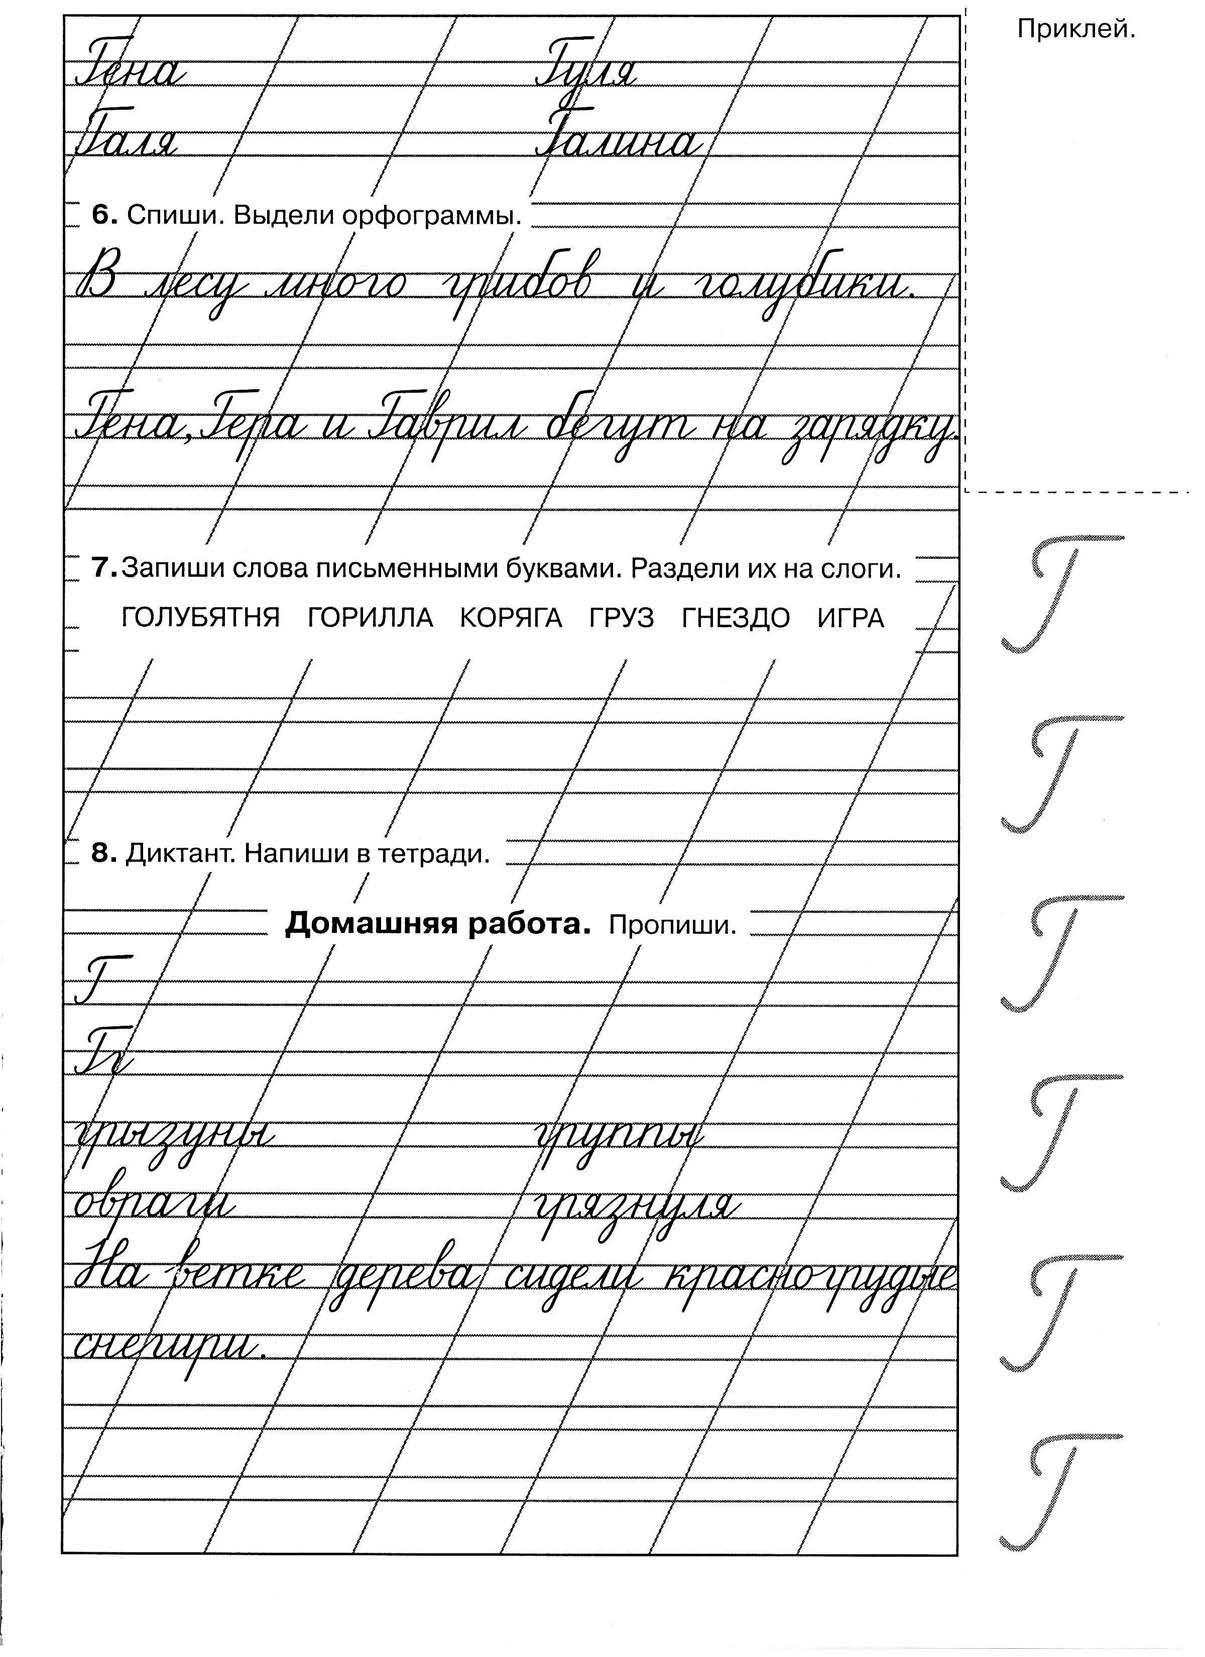 Приклей.
Гена Гуля
Галя Галина
6. Спиши. Выдели орфограммы.
В лесу много грибов и голубики.
Гена, Гера и Гаврил бегут на зарядку.
7. Запиши слова письменными буквами. Раздели их на слоги.
ГОЛУБЯТНЯ ГОРИЛЛА КОРЯГА ГРУЗ ГНЕЗДО ИГРА
8. Диктант. Напиши в тетради.
Домашняя работа. Пропиши.
Г
Гг
грызуны группы
овраги грязнуля
На ветке дерева сидели красногрудые
снегири.
Г
Г
Г
Г
Г
Г